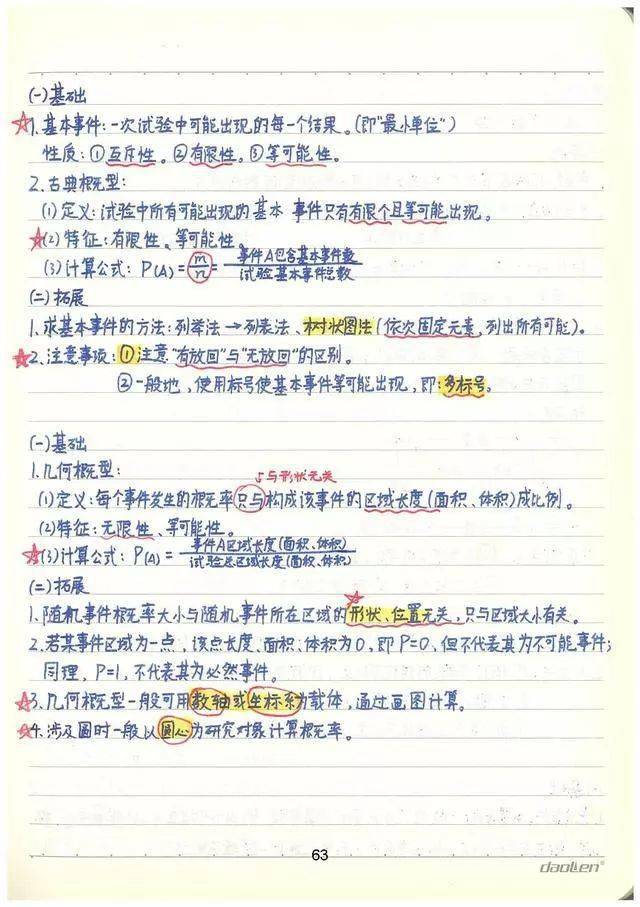 (一)基础
1.基本事件:一次试验中可能出现的每一个结果。(即"最小单位")
性质:①互斥性。②有限性。③等可能性。
2.古典概型:
(1)定义:试验中所有可能出现的基本 事件只有有限个且等可能出现。
(2)特征:有限性、等可能性。
(3)计算公式:P(A)=m/n=事件A包含基本事件数/试验基本事件总数
(二)拓展
1.求基本事件的方法:列举法→列表法、树状图法(依次固定元素,列出所有可能)。
2.注意事项:①注意"有放回"与"无放回"的区别。
②一般地,使用标号使基本事件等可能出现,即:多标号。
(一)基础
1.几何概型:
与形状无关
(1)定义:每个事件发生的概率只与构成该事件的区域长度(面积、体积)成比例。
(2)特征:无限性、等可能性。
(3)计算公式:P(A)=事件A区域长度(面积、体积)/试验总区域长度(面积、体积)
(二)拓展
1.随机事件概率大小与随机事件所在区域的形状、位置无关,只与区域大小有关。
2.若某事件区域为一点,该点长度、面积、体积为0,即P=0,但不代表其为不可能事件;
同理,P=1,不代表其为必然事件。
3.几何概型一般可用数轴或坐标系为载体,通过画图计算。
4.涉及圆时一般以圆心为研究对象计算概率。
63
daolien